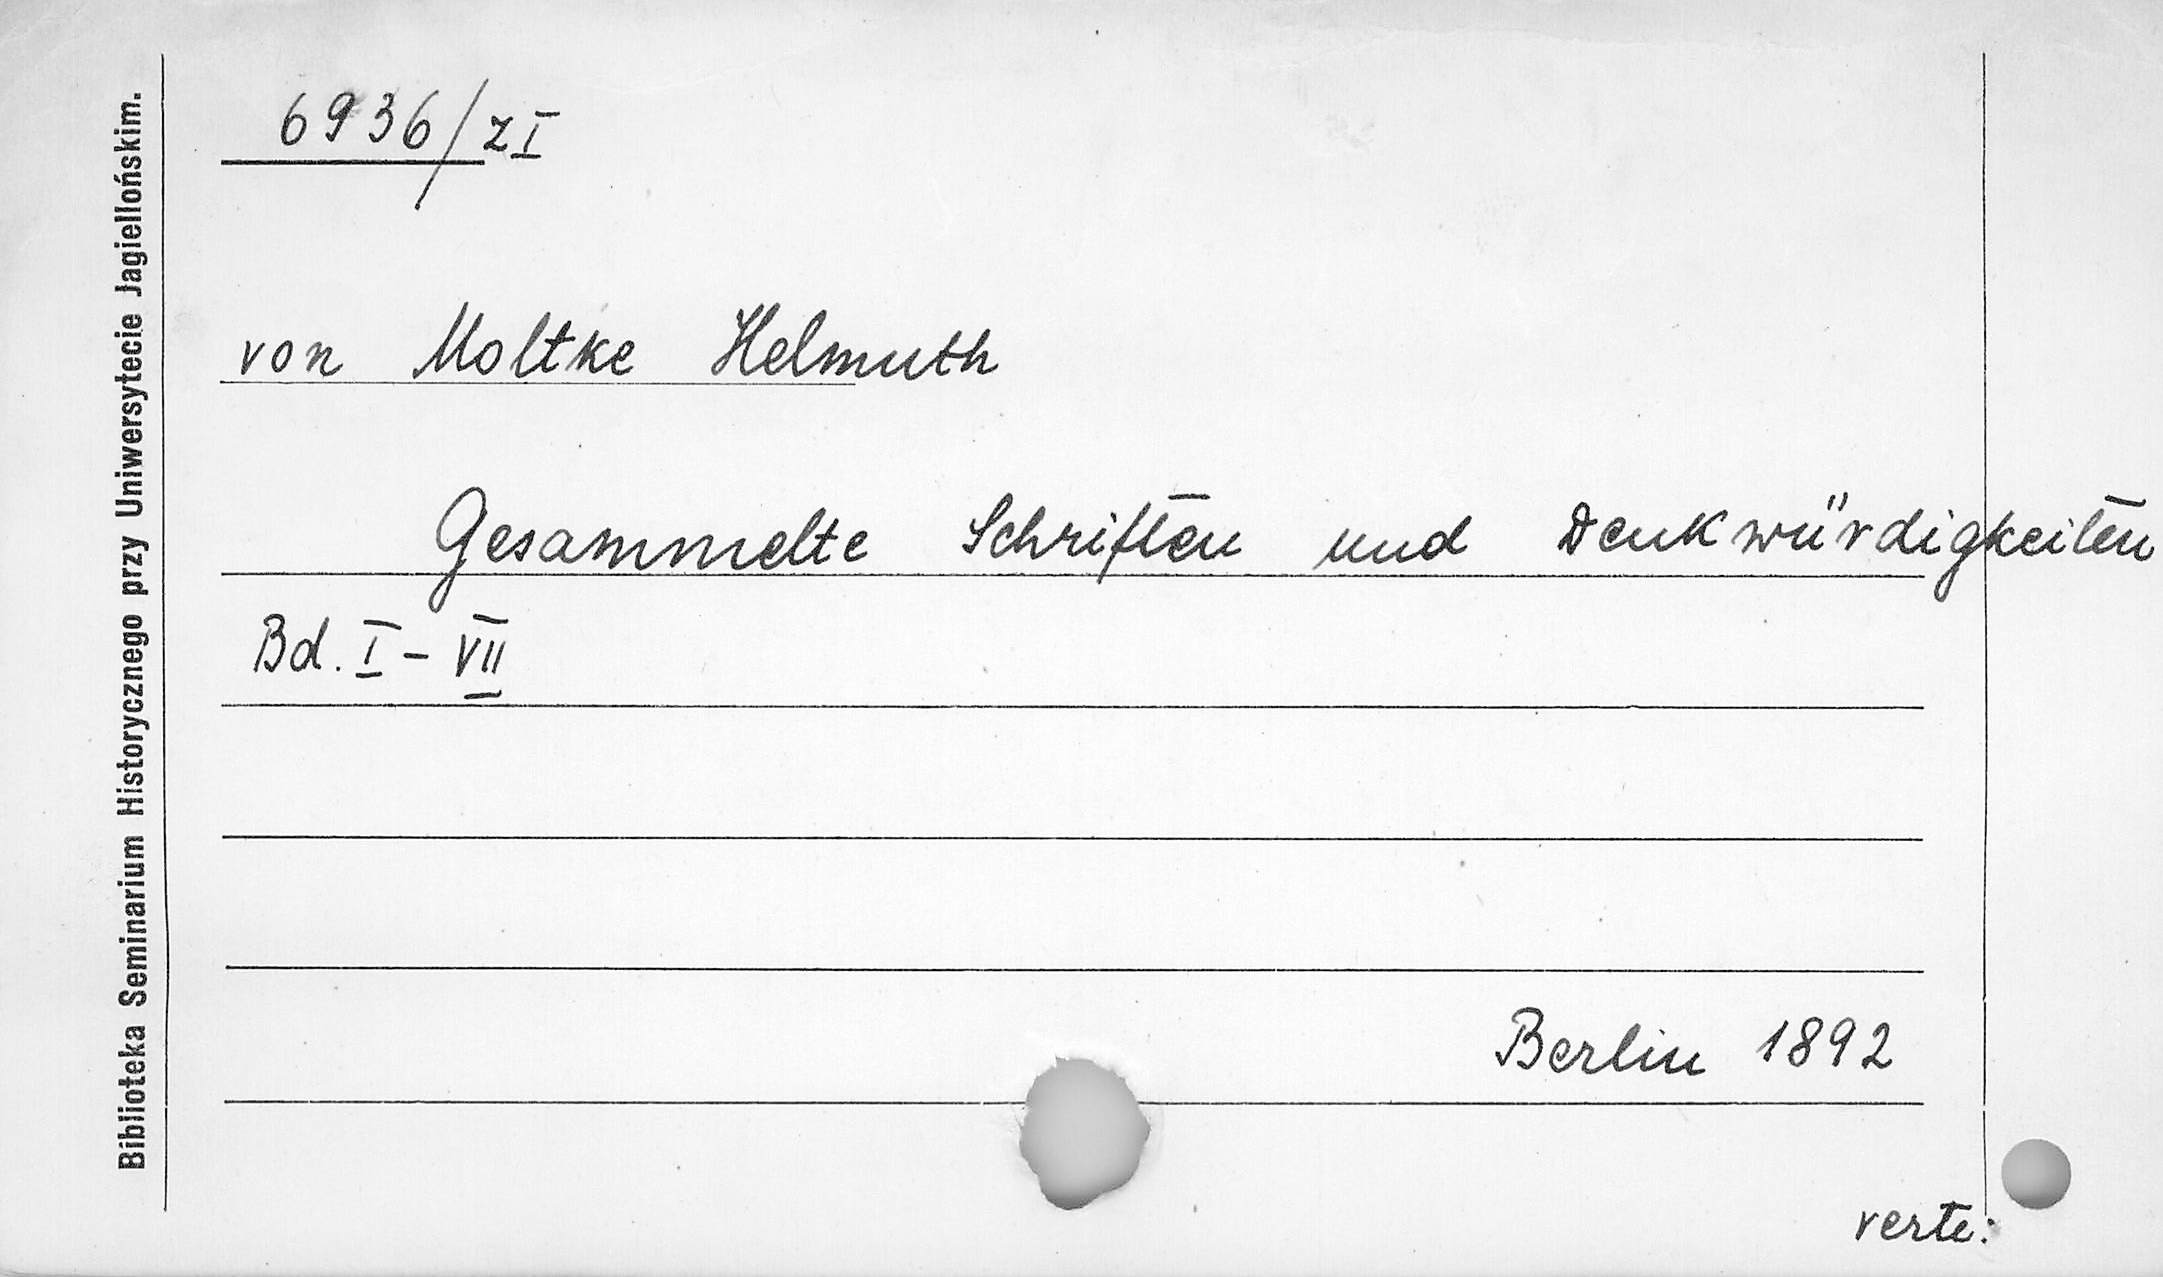 6936/zI
von Moltke Helmuth
Gesammelte Schriften und Denkwürdigkeiten
Bd. I - VII
Berlin 1892
verte:
Biblioteka Seminarium Historycznego przy Uniwersytecie Jagiellońskim.